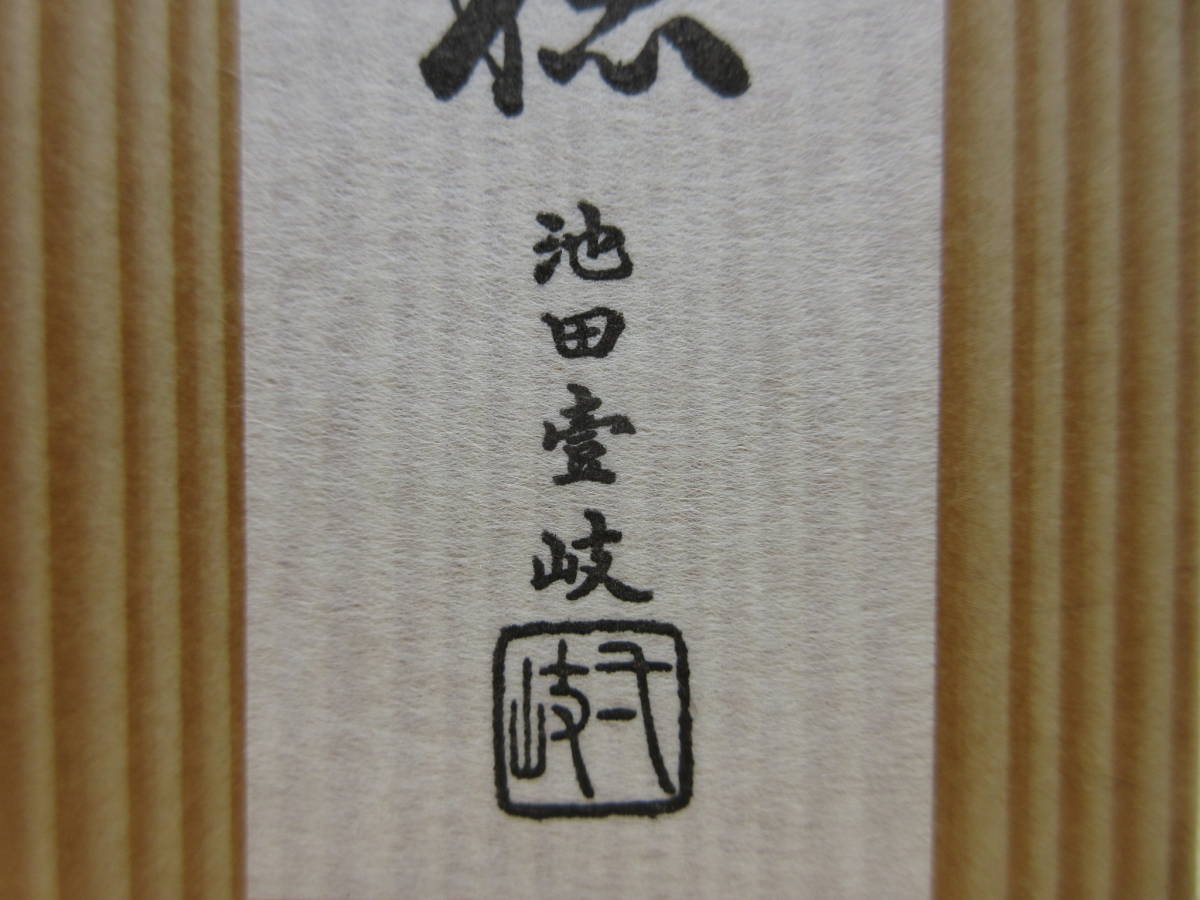 池田壹岐